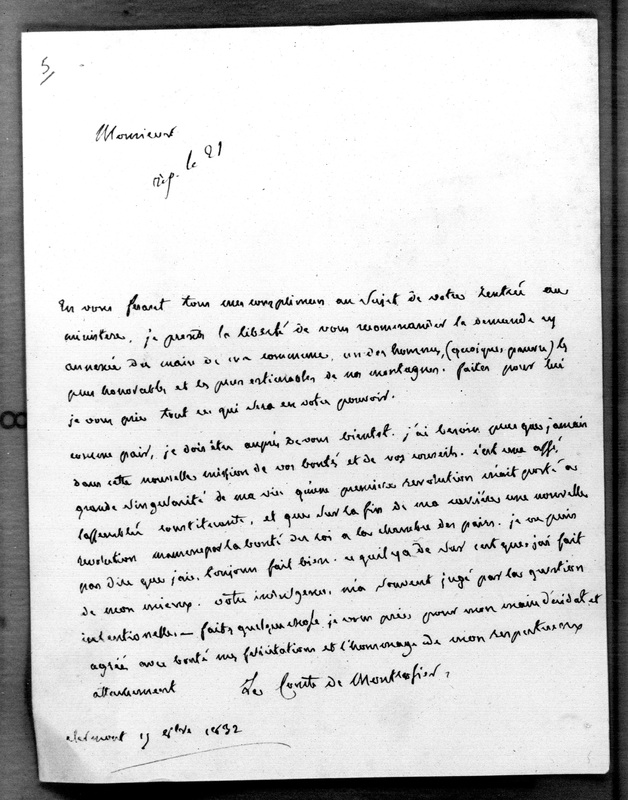 5
Monsieur
rép. le 21
En vous faisant tous mes complimens au sujet de votre rentrée au
ministere, je prends la liberté de vous recommander la demande cy
annexée du maire de ma commune, un des hommes, (quoique pauvre) les
plus honorables et les plus estimables de nos montagnes. faites pour lui
je vous prie tout ce qui sera en votre pouvoir.
comme pair, je dois être auprès de vous bientot. j'ai besoin plus que jamais
dans cette nouvelle mission de vos bontés et de vos conseils. c'est une assés
grande singularité de ma vie qu'une premiere revolution m'ait porté a
l'assemblée constituante, et que sur la fin de ma carrière une nouvelle
revolution m'amene par la bonté du roi a la chambre des pairs. je ne puis
pas dire que j'aie toujours fait bien. ce qu'il y a de sur c'est que j'ai fait
de mon mieux. votre indulgence m'a souvent jugé par la question
intentionelle. — faites quelque chose je vous prie pour mon maire d'eidat et
agréé avec bonté mes felicitations et l'hommage de mon respectueux
attachement Le Comte de Montlosier
clermont 15 8bre 1832